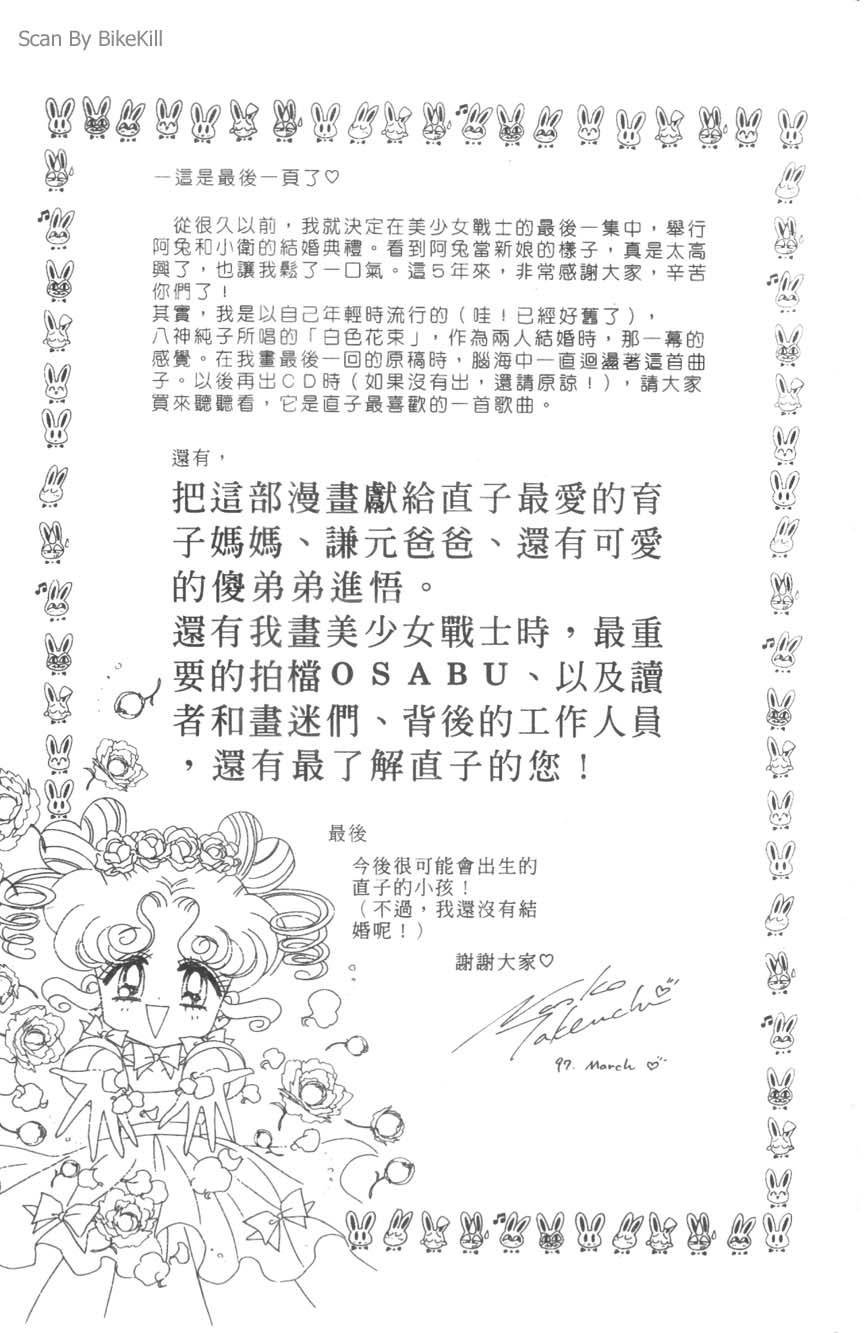 Scan By BikeKill
一這是最後一頁了♡
從很久以前，我就決定在美少女戰士的最後一集中，舉行
阿兔和小衛的結婚典禮。看到阿兔當新娘的樣子，真是太高
興了，也讓我鬆了一口氣。這5年來，非常感謝大家，辛苦
你們了！
其實，我是以自己年輕時流行的（哇！已經好舊了），
八神純子所唱的「白色花束」，作為兩人結婚時，那一幕的
感覺。在我畫最後一回的原稿時，腦海中一直迴盪著這首曲
子。以後再出CD時（如果沒有出，還請原諒！），請大家
買來聽聽看，它是直子最喜歡的一首歌曲。
還有，
把這部漫畫獻給直子最愛的育
子媽媽、謙元爸爸、還有可愛
的傻弟弟進悟。
還有我畫美少女戰士時，最重
要的拍檔OSABU、以及讀
者和畫迷們、背後的工作人員
，還有最了解直子的您！
最後
今後很可能會出生的
直子的小孩！
（不過，我還沒有結
婚呢！）
謝謝大家♡
Naoko
Takeuchi♡
97. March ♡